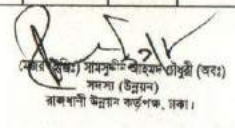 (মেজর (ইঞ্জিঃ) সামসুদ্দীন আহমদ চৌধুরী (অবঃ)
সদস্য (উন্নয়ন)
রাজধানী উন্নয়ন কর্তৃপক্ষ, ঢাকা।